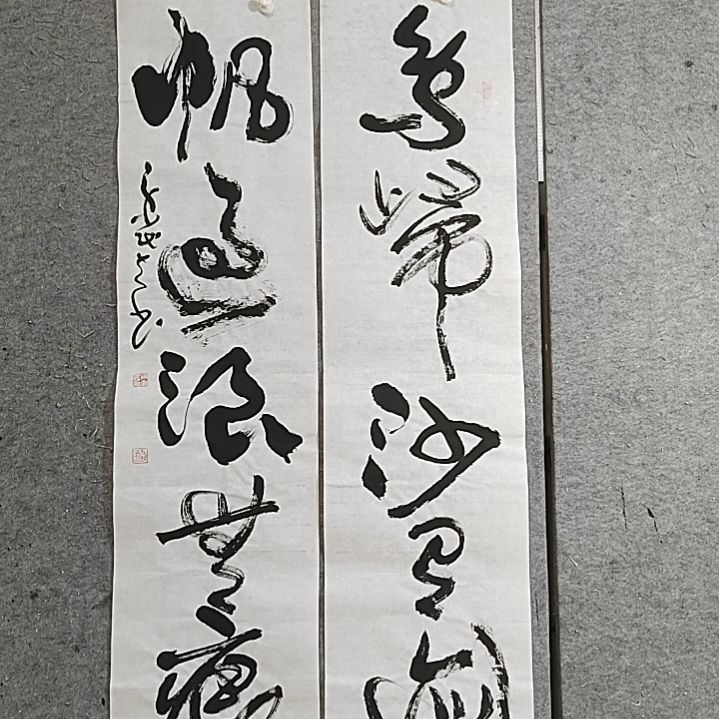 鸟归沙有迹
帆过浪无痕